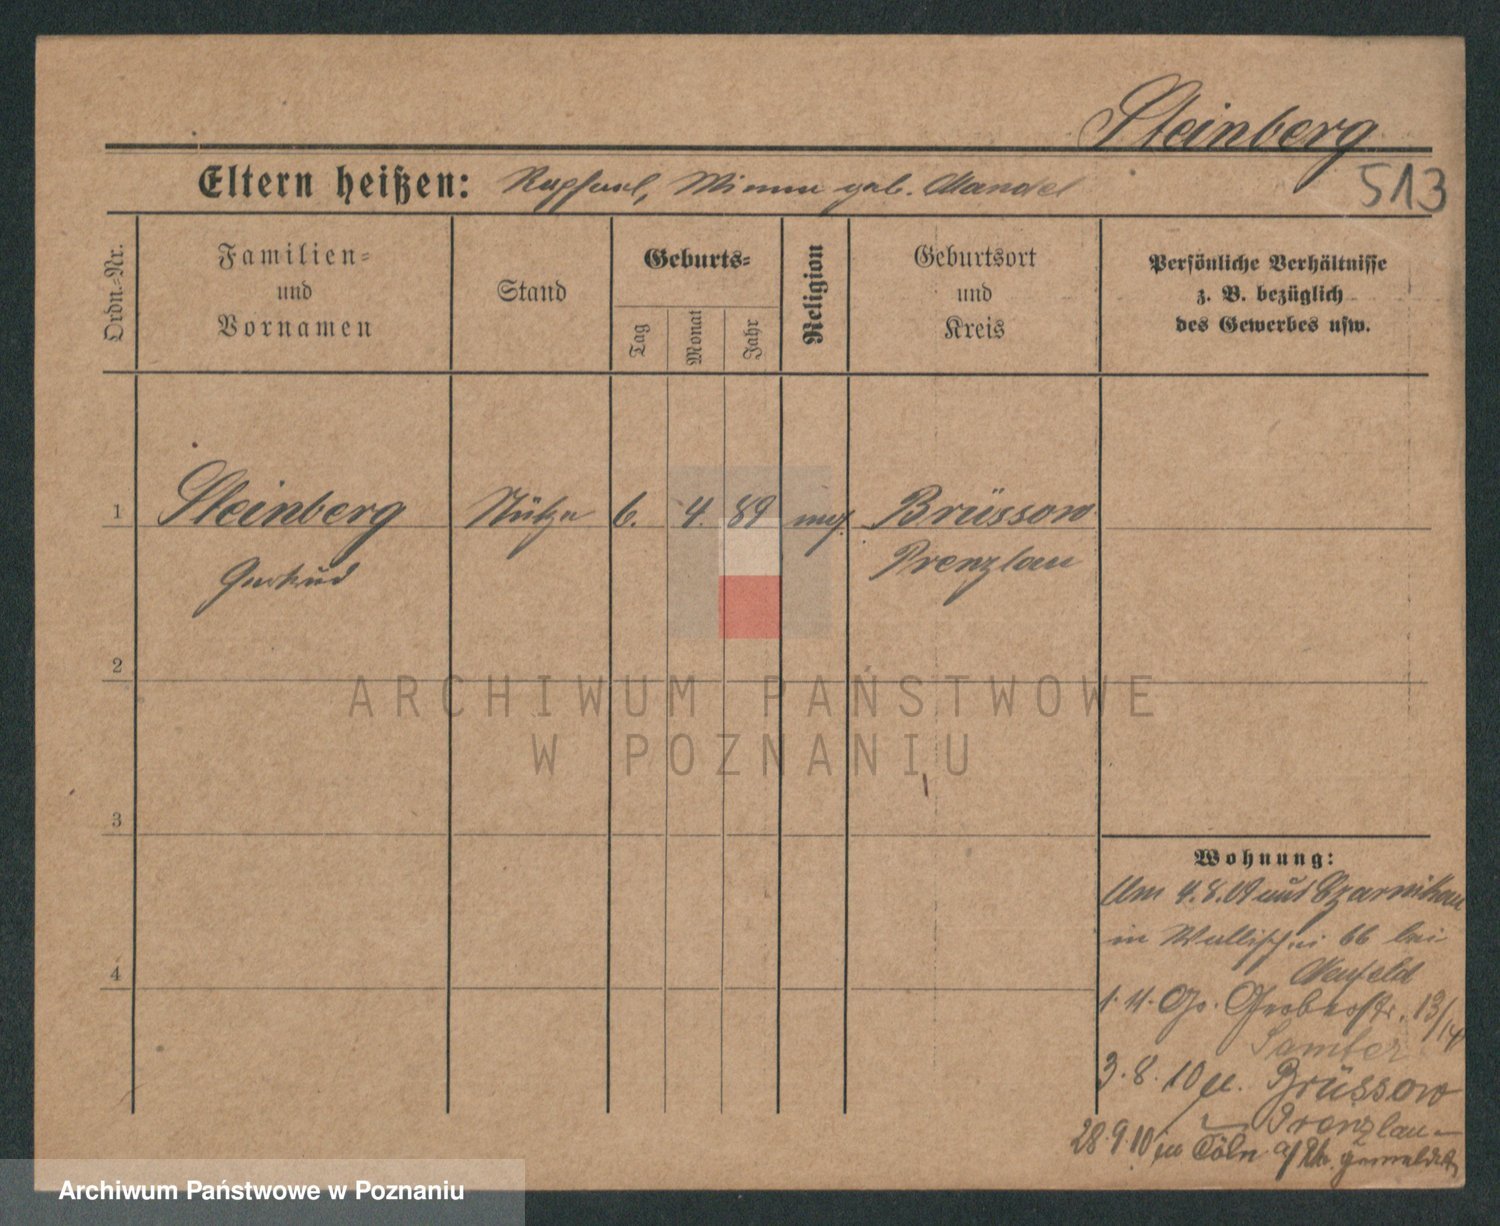 Steinberg
Eltern heißen: Raphael, Minna geb. Mandel
513
Ordn.=Nr.
Familien=
und
Vornamen
Stand
Geburts=
Tag
Monat
Jahr
Religion
Geburtsort
und
Kreis
Persönliche Verhältnisse
z. B. bezüglich
des Gewerbes usw.
1
Steinberg
Gertrud
Stütze
6.
4.
89
mos.
Brüssow
Prenzlau
2
3
4
ARCHIWUM PAŃSTWOWE
W POZNANIU
Wohnung:
Am 4.8.09 aus Czarnikau
in Wallischei 66 bei
Neufeld
1. 11. Gr. Gerberstr. 13/14
Samter
3. 8. 10 n. Brüssow
Prenzlau
28.9.10 in Cöln a/Rh. gemeldet
Archiwum Państwowe w Poznaniu